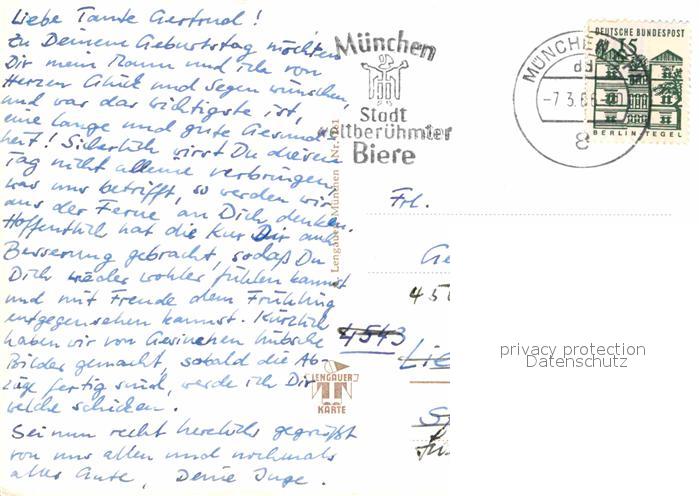 Liebe Tante Gertrud!
Zu Deinem Geburtstag möchten
Dir mein Mann und ich von
Herzen Glück und Segen wünschen,
und was das wichtigste ist,
eine lange und gute Gesund-
heit! Sicherlich wirst Du diesen
Tag nicht alleine verbringen,
was uns betrifft, so werden wir
aus der Ferne an Dich denken.
Hoffentlich hat die Kur Dir auch
Besserung gebracht, sodaß Du
Dich wieder wohler fühlen kannst
und mit Freude dem Frühling
entgegensehen kannst. Kürzlich
haben wir von hübsche
Bilder gemacht, sobald die Ab-
züge fertig sind, werde ich Dir
welche schicken.
Sei nun recht herzlichst gegrüßt
von uns allen und nochmals
alles Gute, Deine Inge.
München
Stadt
weltberühmter
Biere
MÜNCHEN
-7.3.66
8
DEUTSCHE BUNDESPOST
15
BERLIN-TEGEL
Lengauer München Nr.
Frl.
Ge
450
4543
Lie
LENGAUER
KARTE
privacy protection
Datenschutz